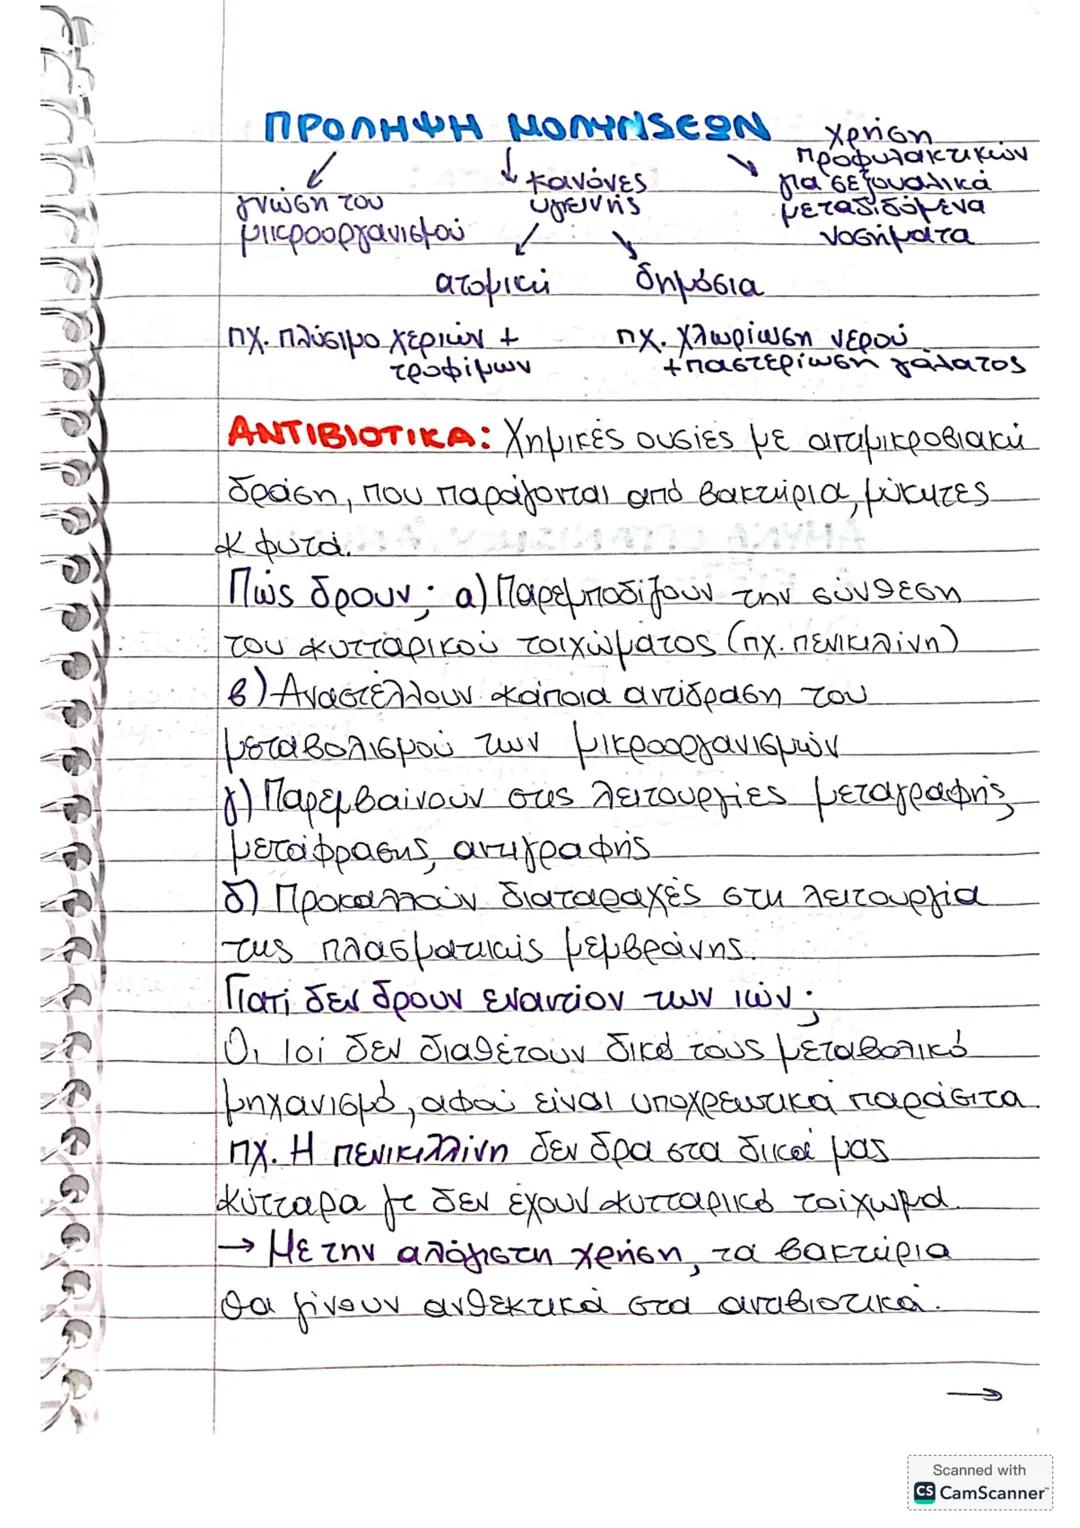 ΠΡΟΛΗΨΗ ΜΟΛΥΝSΕΩΝ
γνώση του
μικροοργανισμού
κανόνες
υγειινής
χρήση
προφυλακτικών
για σεξουαλικά
μεταδιδόμενα
νοσήματα
ατομική
δημόσια
πχ. πλύσιμο χεριών +
τροφίμων
πχ. χλωρίωση νερού
+παστερίωση γάλατος
ΑΝΤΙΒΙΟΤΙΚΑ: Χημικές ουσίες με αντιμικροβιακή
δράση, που παράγονται από βακτήρια, μύκητες
κ φυτά.
Πώς δρουν; α) Παρεμποδίζουν την σύνθεση
του κυτταρικού τοιχώματος (πχ. πενικιλίνη)
β) Αναστέλλουν κάποια αντίδραση του
μεταβολισμού των μικροοργανισμών
γ) Παρεμβαίνουν στις λειτουργίες μεταγραφής,
μετάφρασης, αντιγραφής
δ) Προκαλλούν διαταραχές στη λειτουργία
της πλασματικής μεμβράνης.
Γιατί δεν δρουν εναντίον των ιών;
Οι ιοί δεν διαθέτουν δικό τους μεταβολικό
μηχανισμό, αφού είναι υποχρεωτικά παράσιτα.
πχ. Η πενικιλλίνη δεν δρα στα δικά μας
κύτταρα γτ δεν έχουν κυτταρικό τοίχωμα.
→ Με την αλόγιστη χρήση, τα βακτήρια
θα γίνουν ανθεκτικά στα αντιβιοτικά.
→
Scanned with
CS CamScanner